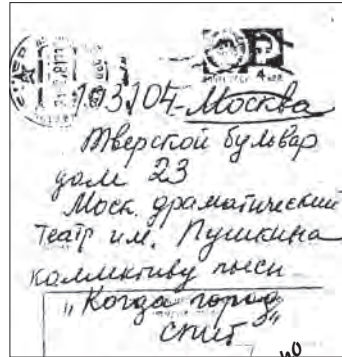 103104 - Москва
Тверской бульвар
дом 23
Моск. драматический
театр им. Пушкина
коллективу пьесы
"Когда город
спит"